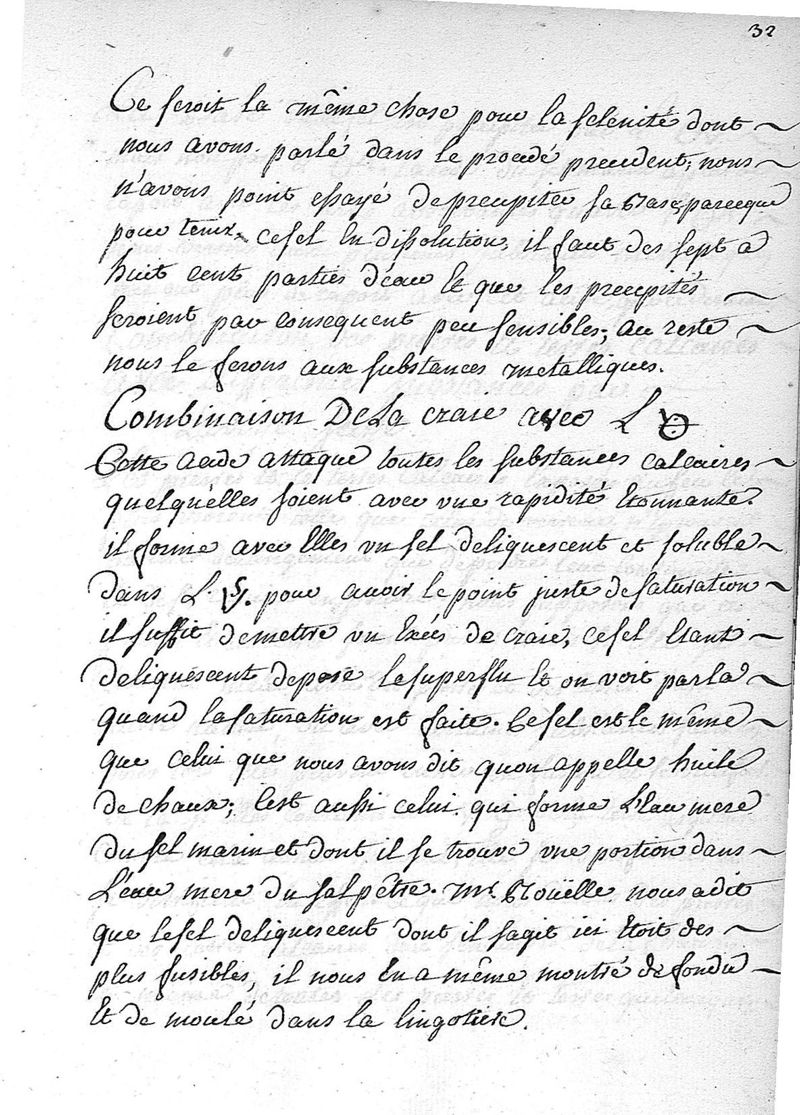 32
Ce seroit la même chose pour la selenité dont
nous avons parlé dans le procedé precedent; nous
n'avons point essayé de precipiter sa Base, parceque
pour tenir ce sel En dissolution, il faut des sept a
huit cent parties d'eau Et que les precipités
seroient par consequent peu sensibles; au reste
nous le ferons aux substances metalliques.
Combinaison De La craie avec L'
Cette acide attaque toutes les substances calcaires
quelquelles soient avec une rapidité Etonnante.
il forme avec Elles un sel deliquescent et soluble
dans L' pour avoir le point juste de saturation
il suffit de mettre un Excés de craie, ce sel Etant
deliquéscent depose le superflu Et on voit par la
quand la saturation est faite. Ce sel est le même
que celui que nous avons dit quon appelle huile
de chaux; C'est aussi celui qui forme L'Eau mere
du sel marin et dont il se trouve une portion dans
L'Eau mere du salpêtre. Mr. Roüelle nous a dit
que le sel deliquescent dont il sagit ici Etoit des
plus fusibles, il nous En a même montré de fondu
Et de moulé dans la lingotiere.